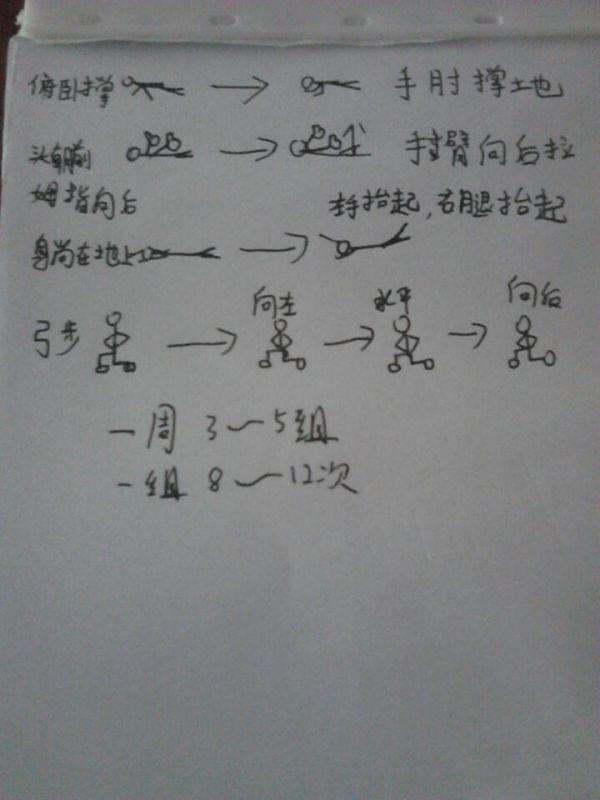 俯卧撑 手肘撑土地
头朝前 手臂向后拉
姆指向后 抬起，右腿抬起
身尚在地上
弓步 向左 水平 向后
一周 3～5组
一组 8～12次